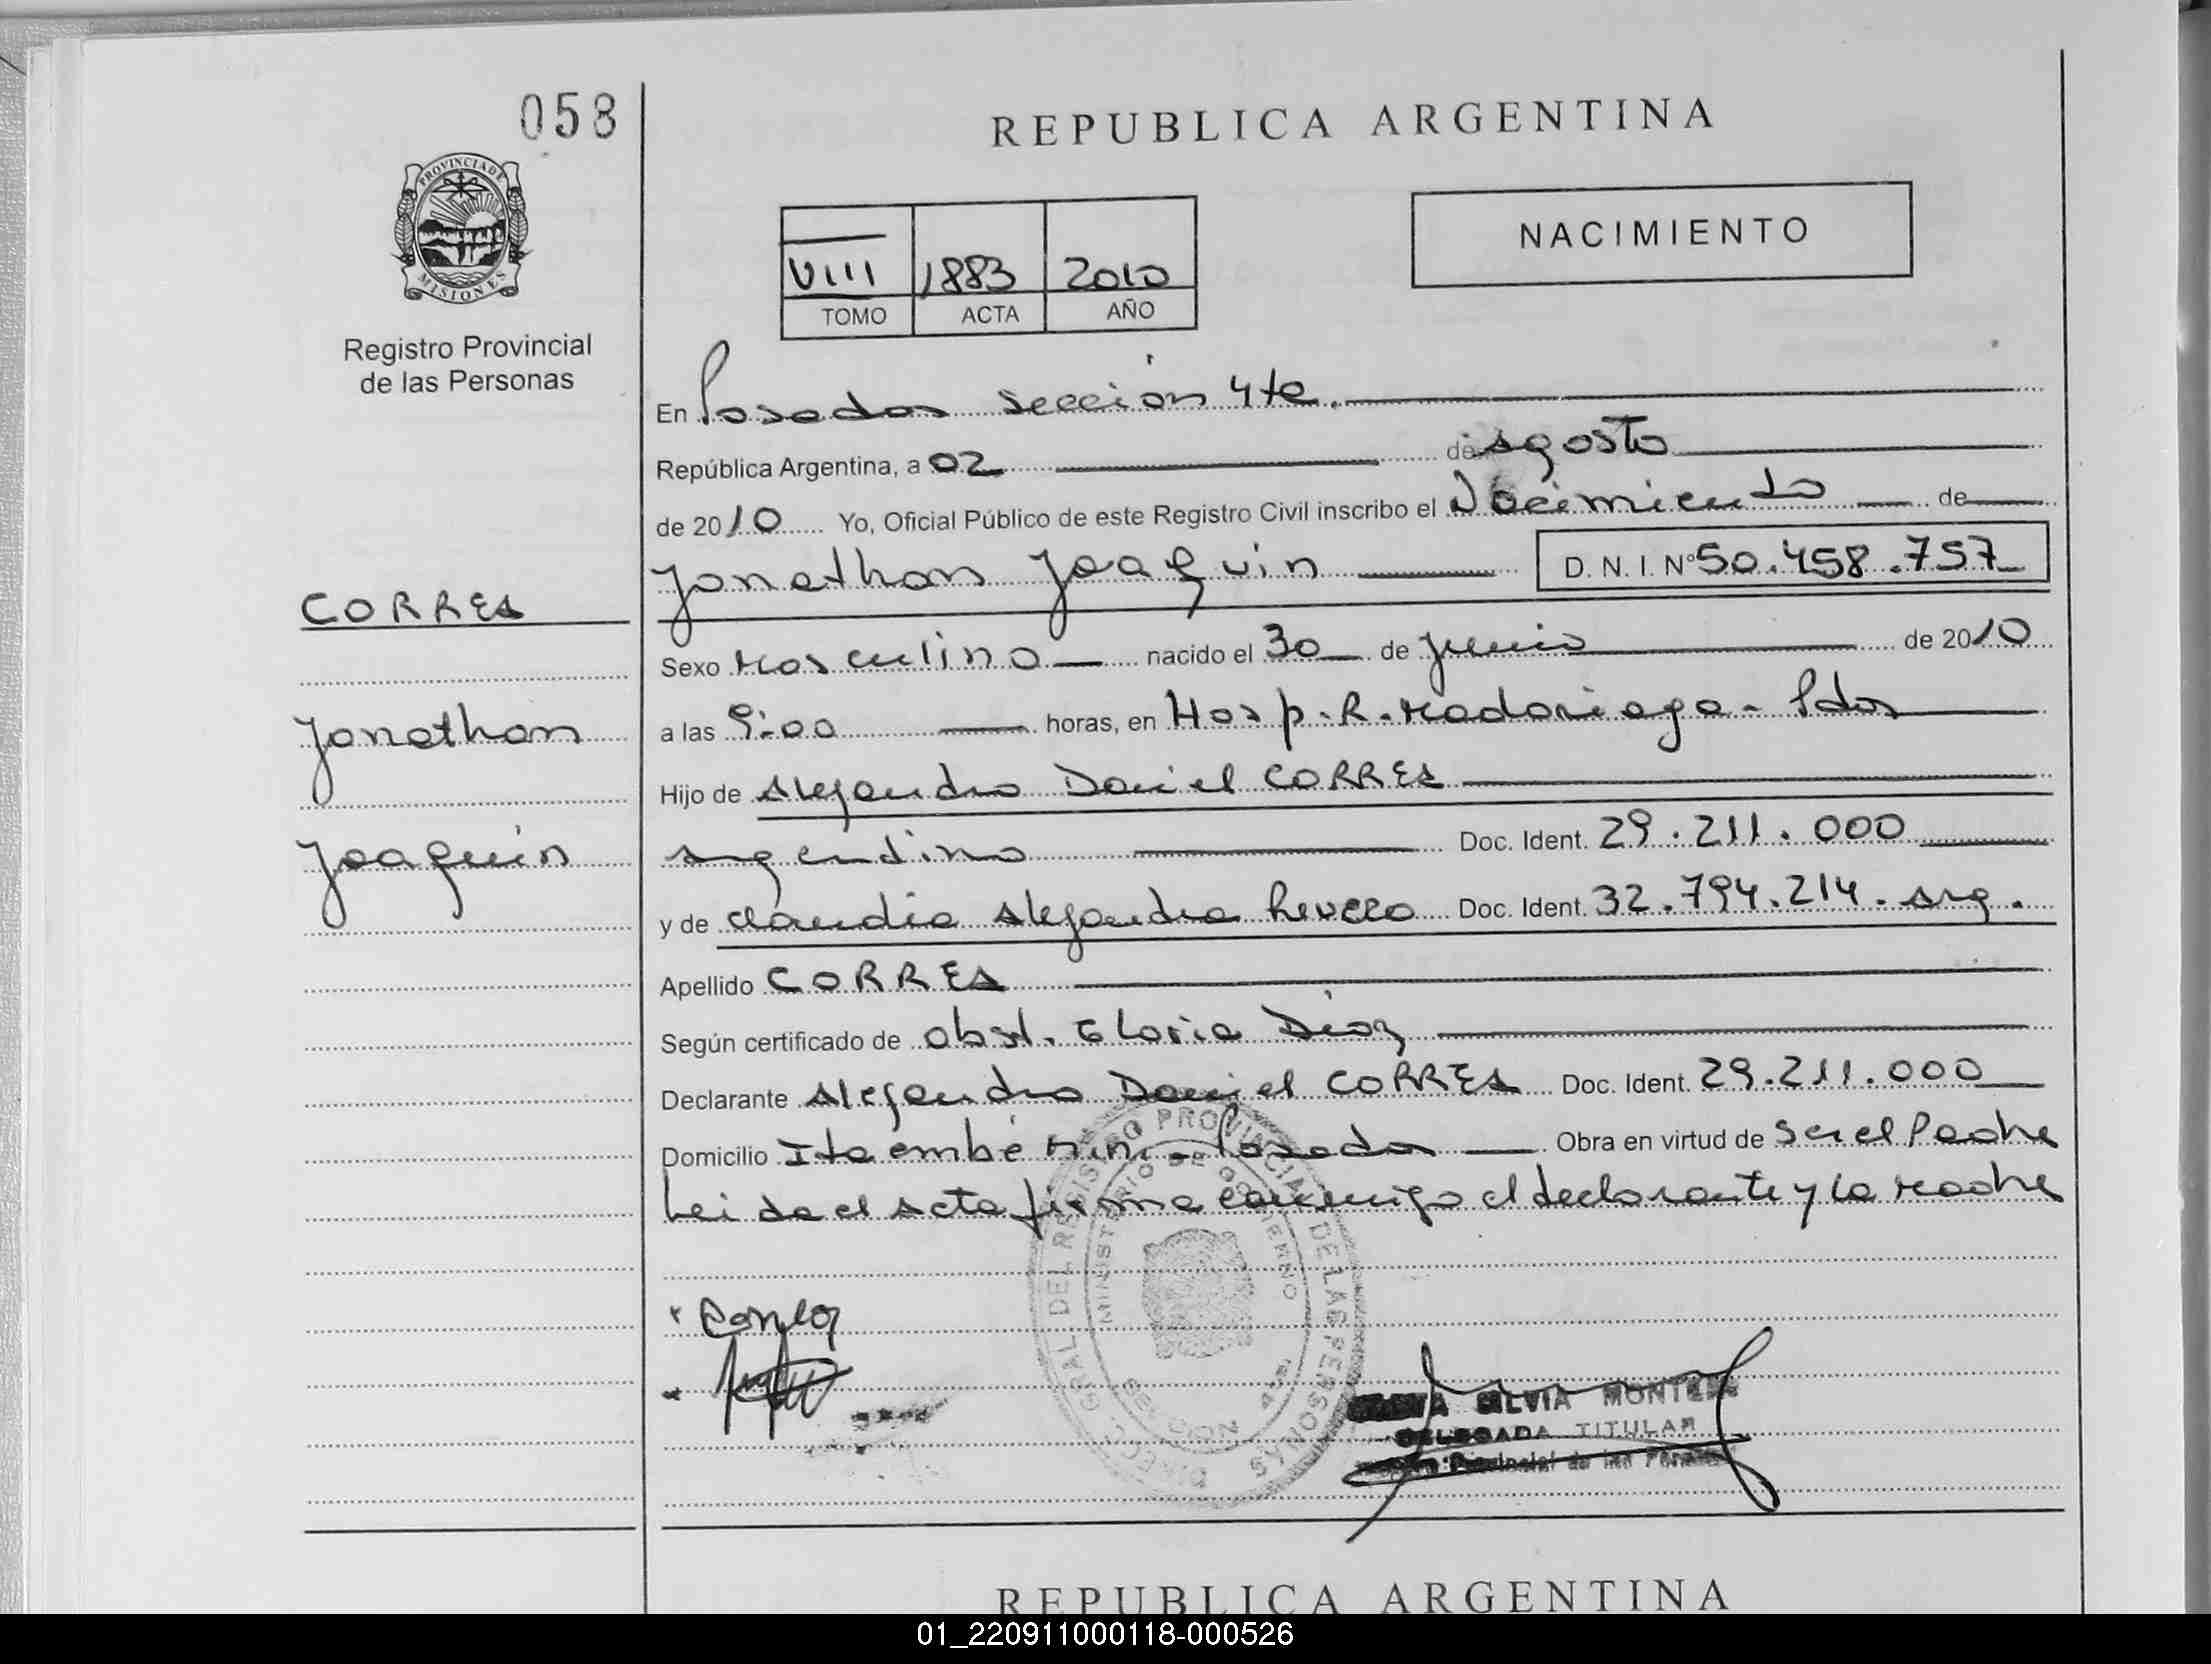 058
REPUBLICA ARGENTINA
PROVINCIA DE
MISIONES
Registro Provincial
de las Personas
VIII 1883 2010
TOMO ACTA AÑO
NACIMIENTO
En Posadas sección 4ta.
República Argentina, a 02 de agosto
de 2010 Yo, Oficial Público de este Registro Civil inscribo el Nacimiento de
Jonathan Joaquin D.N.I. Nº 50.458.757
CORRES
Jonathan
Joaquin
Sexo Masculino nacido el 30 de junio de 2010
a las 9:00 horas, en Hosp. R. Madariaga - Pdas
Hijo de Alejandro Daniel CORRES
argentino Doc. Ident. 29.211.000
y de Claudia Alejandra Doc. Ident. 32.794.214. arg.
Apellido CORRES
Según certificado de obst. Gloria Diaz
Declarante Alejandro Daniel CORRES Doc. Ident. 29.211.000
Domicilio Itaembé Mini - Posadas Obra en virtud de ser el Padre
Leida el acta firma conmigo el declarante y la madre
DIRECC. GRAL. DEL REGISTRO PROVINCIAL DE LAS PERSONAS
MINISTERIO DE GOBIERNO
SILVIA MONTE
DELEGADA TITULAR
Provincial de las
REPUBLICA ARGENTINA
01_220911000118-000526